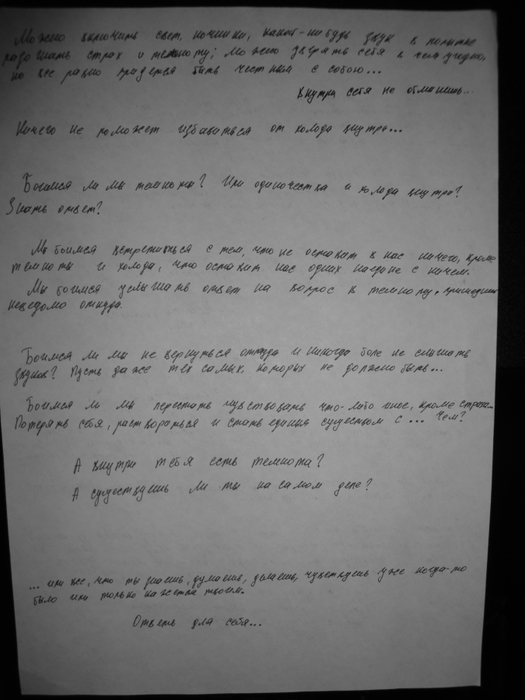 Можно включить свет, ночники, какой-нибудь звук в попытке
разогнать страх и темноту; можно уверять себя в чем угодно,
но все равно придется быть честным с собою...
внутри себя не обманешь...
Ничего не поможет избавиться от холода внутри...
Боимся ли мы темноты? Или одиночества и холода внутри?
Знать ответ?
Мы боимся встретиться с тем, что не оставит в нас ничего, кроме
темноты и холода, что оставит нас одних наедине с ничем.
Мы боимся услышать ответ на вопрос в темноту, пришедший
неведомо откуда.
Боимся ли мы не вернуться оттуда и никогда боле не слышать
звуков? Пусть даже тех самых, которых не должно быть...
Боимся ли мы перестать чувствовать что-либо иное, кроме страха...
Потерять себя, раствориться и стать единым существом с ... Чем?
А внутри тебя есть темнота?
А существуешь ли ты на самом деле?
... или все, что ты знаешь, думаешь, делаешь, чувствуешь уже когда-то
было или только кажется твоим.
Ответь для себя...